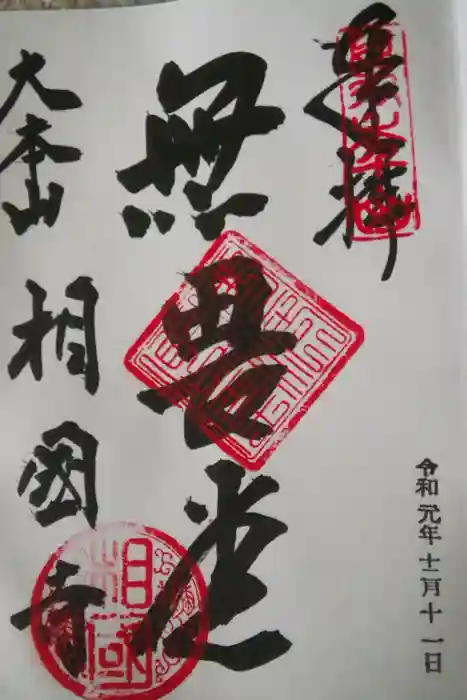 奉拝
無畏堂
大本山 相國寺
相國
令和元年十一月十一日